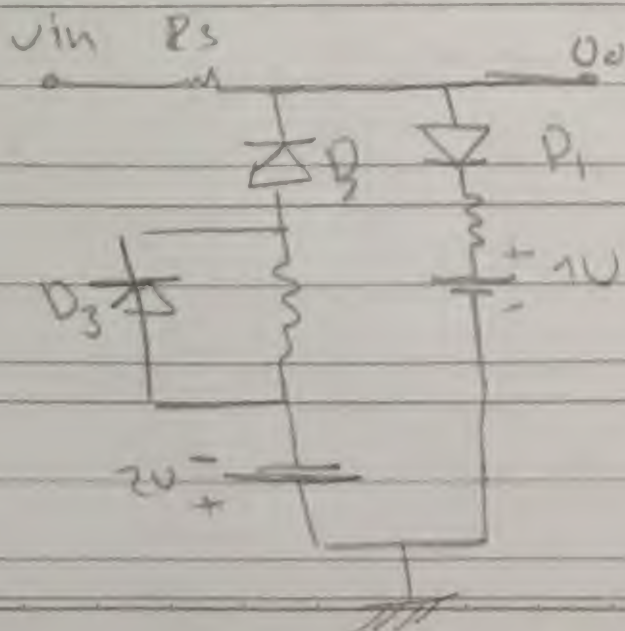 Vin Rs Vo
D2 D1
+
D3 1V
-
2V -
+